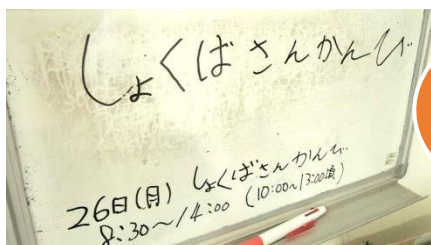 しょくばさんかんび
26日(月) しょくばさんかんび
8:30〜14:00 (10:00〜13:00頃)